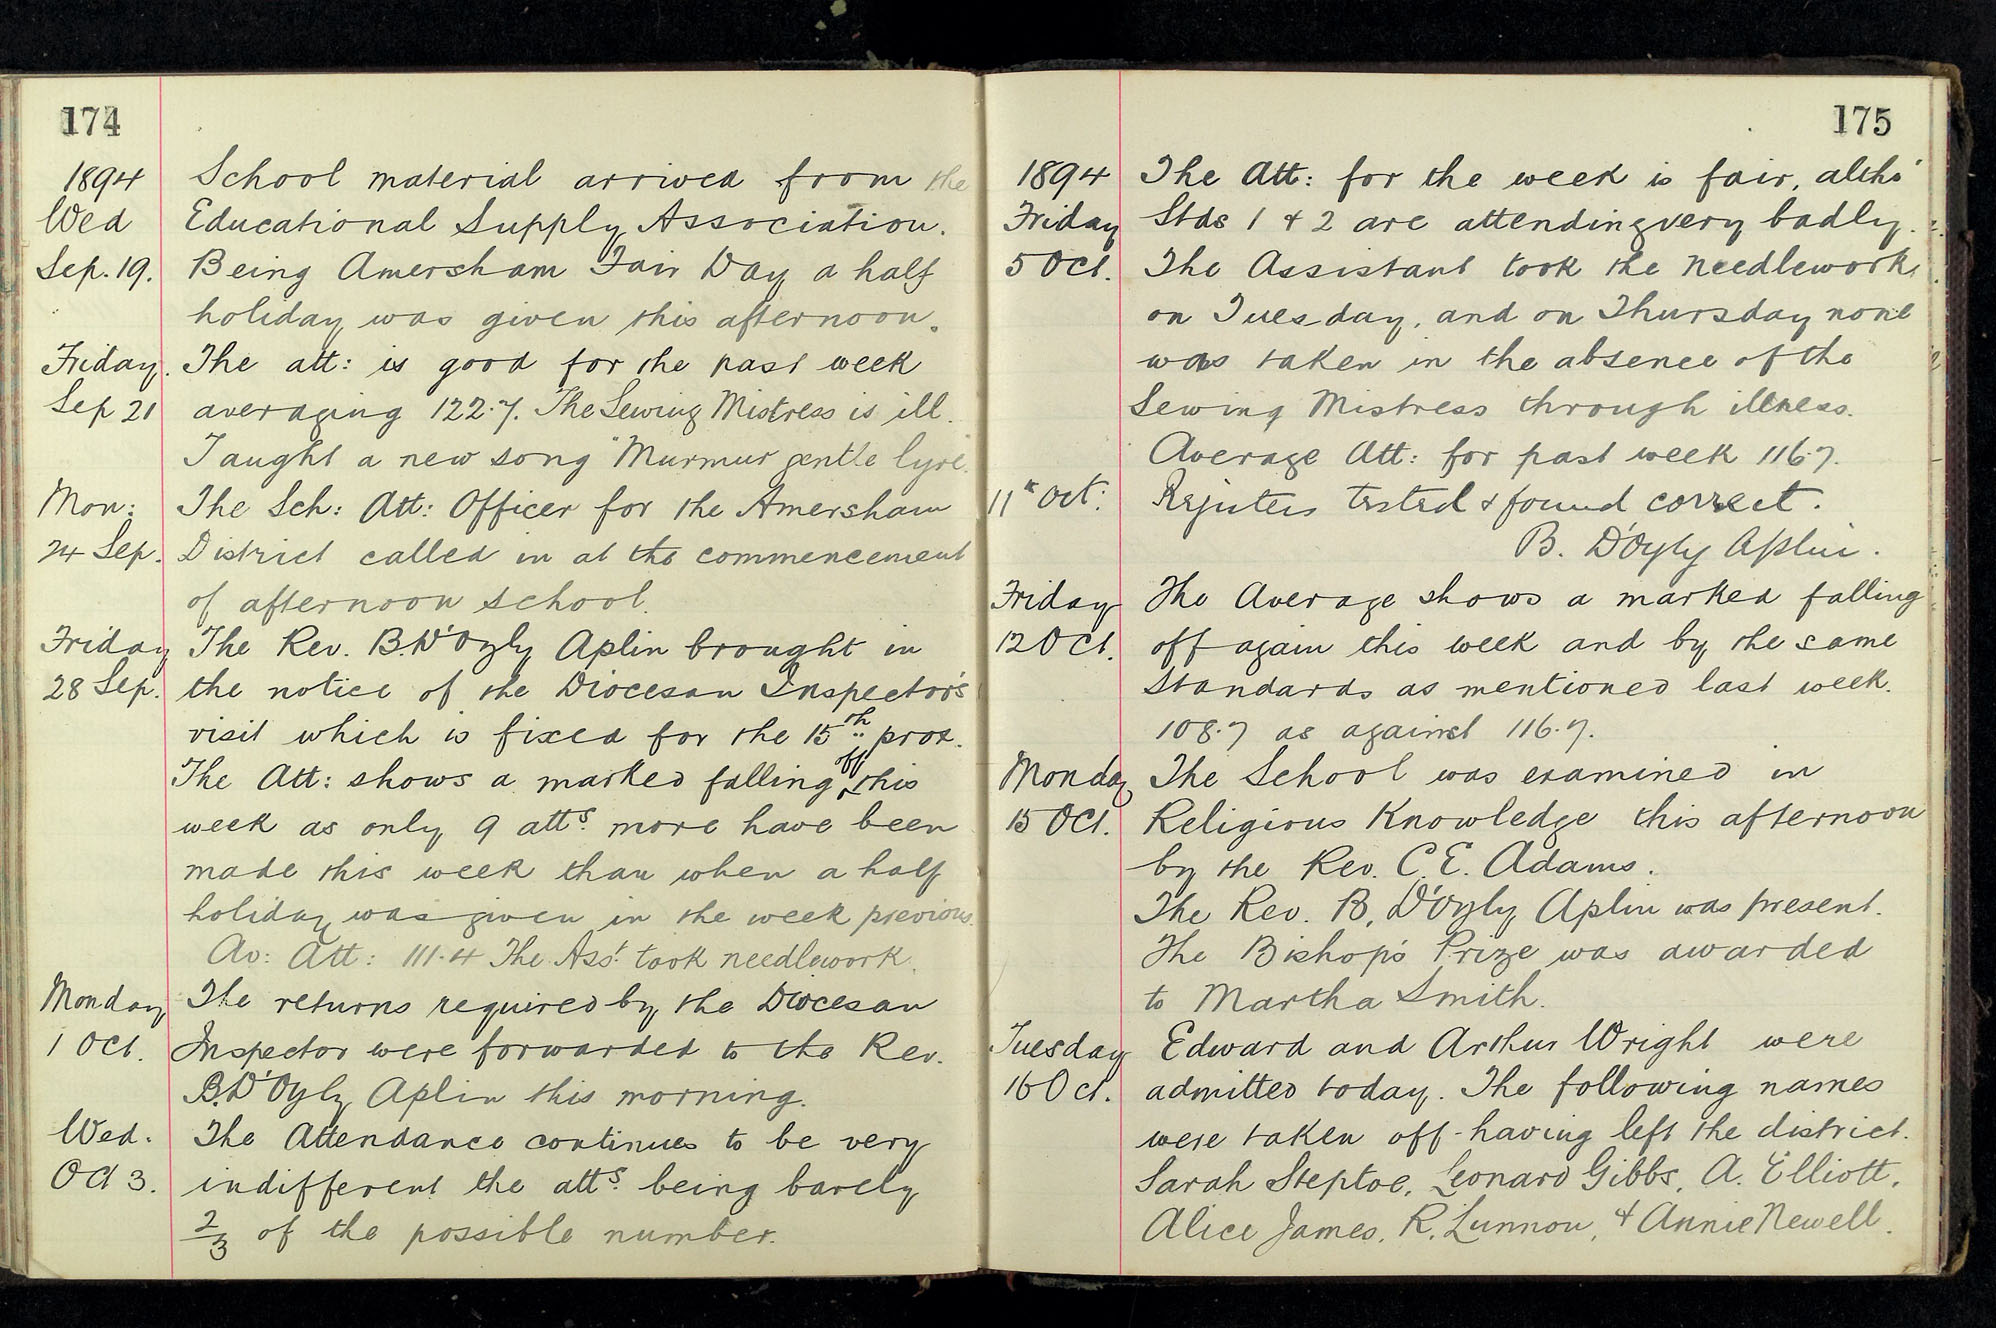 174
1894 School material arrived from the
Wed Educational Supply Association.
Sep. 19. Being Amersham Fair Day a half
holiday was given this afternoon.
Friday. The att: is good for the past week
Sep 21 averaging 122.7. The Sewing Mistress is ill.
Taught a new song "Murmur gentle lyre."
Mon: The Sch: Att: Officer for the Amersham
24 Sep. District called in at the commencement
of afternoon school.
Friday The Rev. B. D'Oyly Aplin brought in
28 Sep. the notice of the Diocesan Inspector's
visit which is fixed for the 15th prox.
The Att: shows a marked falling off this
week as only 9 atts. more have been
made this week than when a half
holiday was given in the week previous.
Av: Att: 111.4 The Asst. took needlework.
Monday The returns required by the Diocesan
1 Oct. Inspector were forwarded to the Rev.
B. D'Oyly Aplin this morning.
Wed. The Attendance continues to be very
Oct 3. indifferent the atts. being barely
2/3 of the possible number.
175
1894 The Att: for the week is fair, altho'
Friday Stds 1 & 2 are attending very badly.
5 Oct. The Assistant took the needlework
on Tuesday, and on Thursday none
was taken in the absence of the
Sewing Mistress through illness.
Average Att: for past week 116.7.
11th Oct: Registers tested & found correct.
B. D'Oyly Aplin.
Friday The Average shows a marked falling
12 Oct. off again this week and by the same
Standards as mentioned last week.
108.7 as against 116.7.
Monday The School was examined in
15 Oct. Religious Knowledge this afternoon
by the Rev. C. E. Adams.
The Rev. B. D'Oyly Aplin was present.
The Bishop's Prize was awarded
to Martha Smith.
Tuesday Edward and Arthur Wright were
16 Oct. admitted today. The following names
were taken off - having left the district.
Sarah Steptoe, Leonard Gibbs, A. Elliott,
Alice James, R. Lunnon, & Annie Newell.